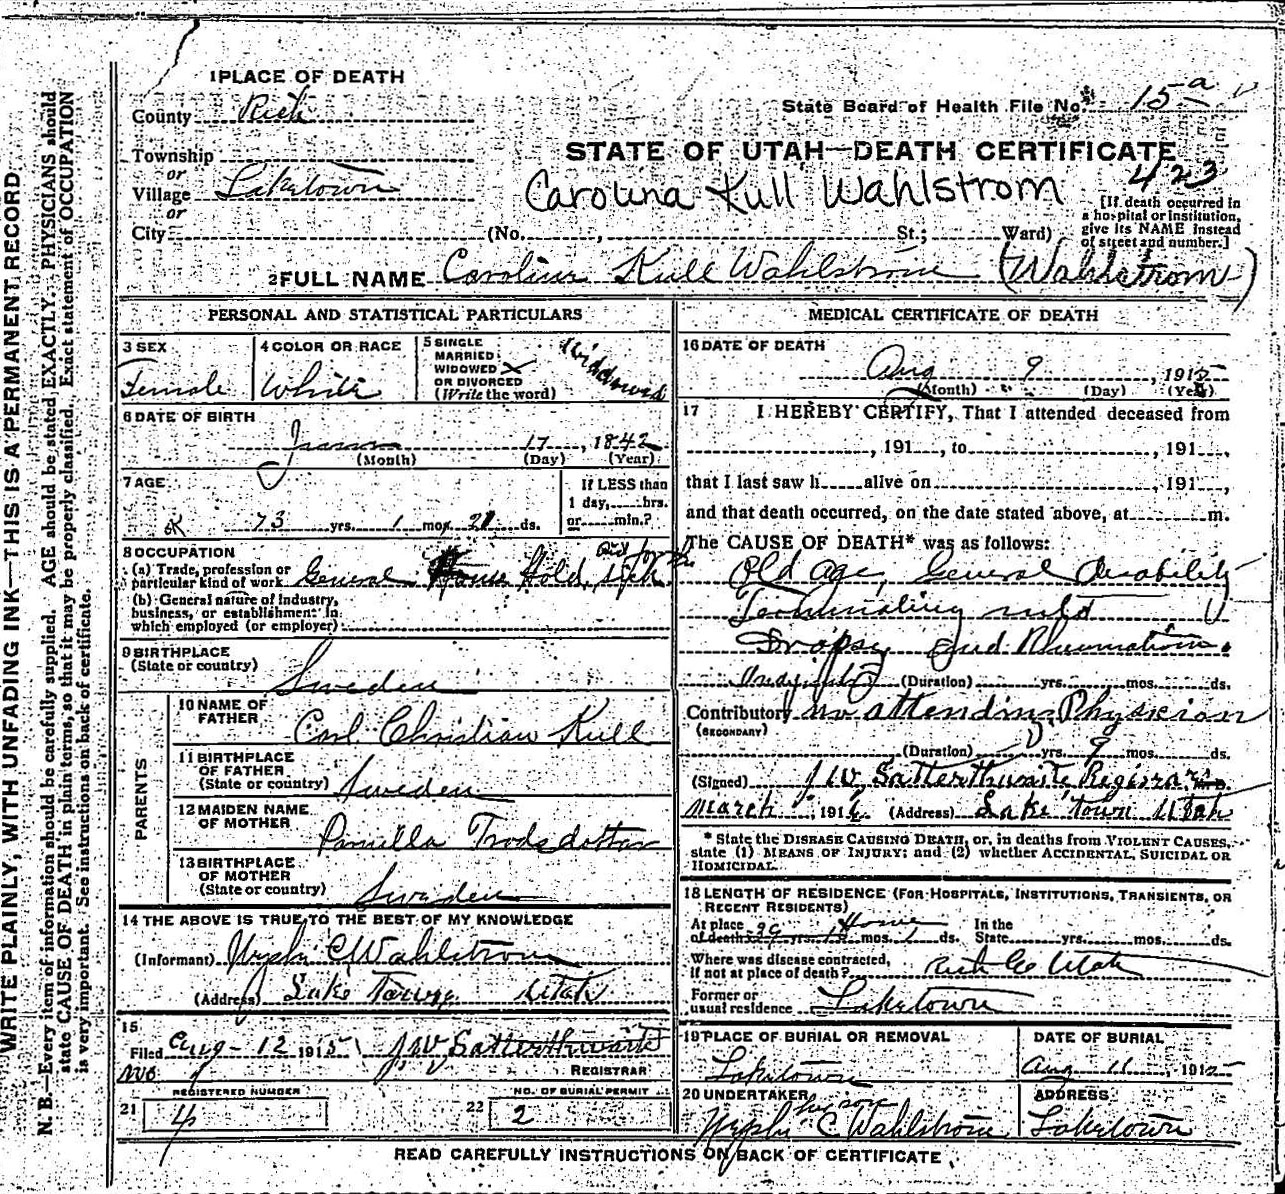 1 PLACE OF DEATH
County Rich
State Board of Health File No. 15 a
Township
or
Village Laketown
or
City (No. , St.; Ward)
STATE OF UTAH—DEATH CERTIFICATE
423
Carolina Kull Wahlstrom
[If death occurred in
a hospital or institution,
give its NAME instead
of street and number.]
2 FULL NAME Carolina Kull Wahlstrom (Wahlstrom)
PERSONAL AND STATISTICAL PARTICULARS
3 SEX
Female
4 COLOR OR RACE
White
5 SINGLE
MARRIED
WIDOWED X
OR DIVORCED
(Write the word)
Widdowed
6 DATE OF BIRTH
17, 1842
(Month) (Day) (Year)
7 AGE
73 yrs. 1 mo. 21 ds.
If LESS than
1 day, hrs.
or min.?
8 OCCUPATION
(a) Trade, profession or
particular kind of work General House Hold
(b) General nature of industry,
business, or establishment in
which employed (or employer)
9 BIRTHPLACE
(State or country)
Sweden
PARENTS
10 NAME OF
FATHER
Carl Christian Kull
11 BIRTHPLACE
OF FATHER
(State or country) Sweden
12 MAIDEN NAME
OF MOTHER
13 BIRTHPLACE
OF MOTHER
(State or country)
Sweden
14 THE ABOVE IS TRUE TO THE BEST OF MY KNOWLEDGE
(Informant) Nephi C Wahlstrom
(Address) Lake Town Utah
15
Filed Aug - 12 1915 J W Satterthwaite
REGISTRAR
REGISTERED NUMBER
21 4
NO. OF BURIAL PERMIT
22 2
MEDICAL CERTIFICATE OF DEATH
16 DATE OF DEATH
Aug 9, 1915
(Month) (Day) (Year)
17 I HEREBY CERTIFY, That I attended deceased from
, 191 , to , 191 ,
that I last saw h alive on , 191 ,
and that death occurred, on the date stated above, at m.
The CAUSE OF DEATH* was as follows:
Old age, General
Dropsy and Rheumatism.
(Duration) yrs. mos. ds.
Contributory no attending Physician
(SECONDARY)
(Duration) yrs. 9 mos. ds.
(Signed) J W Satterthwaite Registrar
March, 1916 (Address) Lake town Utah
* State the DISEASE CAUSING DEATH, or, in deaths from VIOLENT CAUSES,
state (1) MEANS OF INJURY; and (2) whether ACCIDENTAL, SUICIDAL OR
HOMICIDAL.
18 LENGTH OF RESIDENCE (FOR HOSPITALS, INSTITUTIONS, TRANSIENTS, OR
RECENT RESIDENTS)
At place Home In the
of death yrs. mos. ds. State yrs. mos. ds.
Where was disease contracted,
if not at place of death? Rich Co Utah
Former or
usual residence Laketown
19 PLACE OF BURIAL OR REMOVAL
Laketown
DATE OF BURIAL
Aug 11, 1915
20 UNDERTAKER
his son
Nephi C. Wahlstrom
ADDRESS
Laketown
READ CAREFULLY INSTRUCTIONS ON BACK OF CERTIFICATE
WRITE PLAINLY, WITH UNFADING INK—THIS IS A PERMANENT RECORD
N. B.—Every item of information should be carefully supplied. AGE should be stated EXACTLY. PHYSICIANS should
state CAUSE OF DEATH in plain terms, so that it may be properly classified. Exact statement of OCCUPATION
is very important. See instructions on back of certificate.